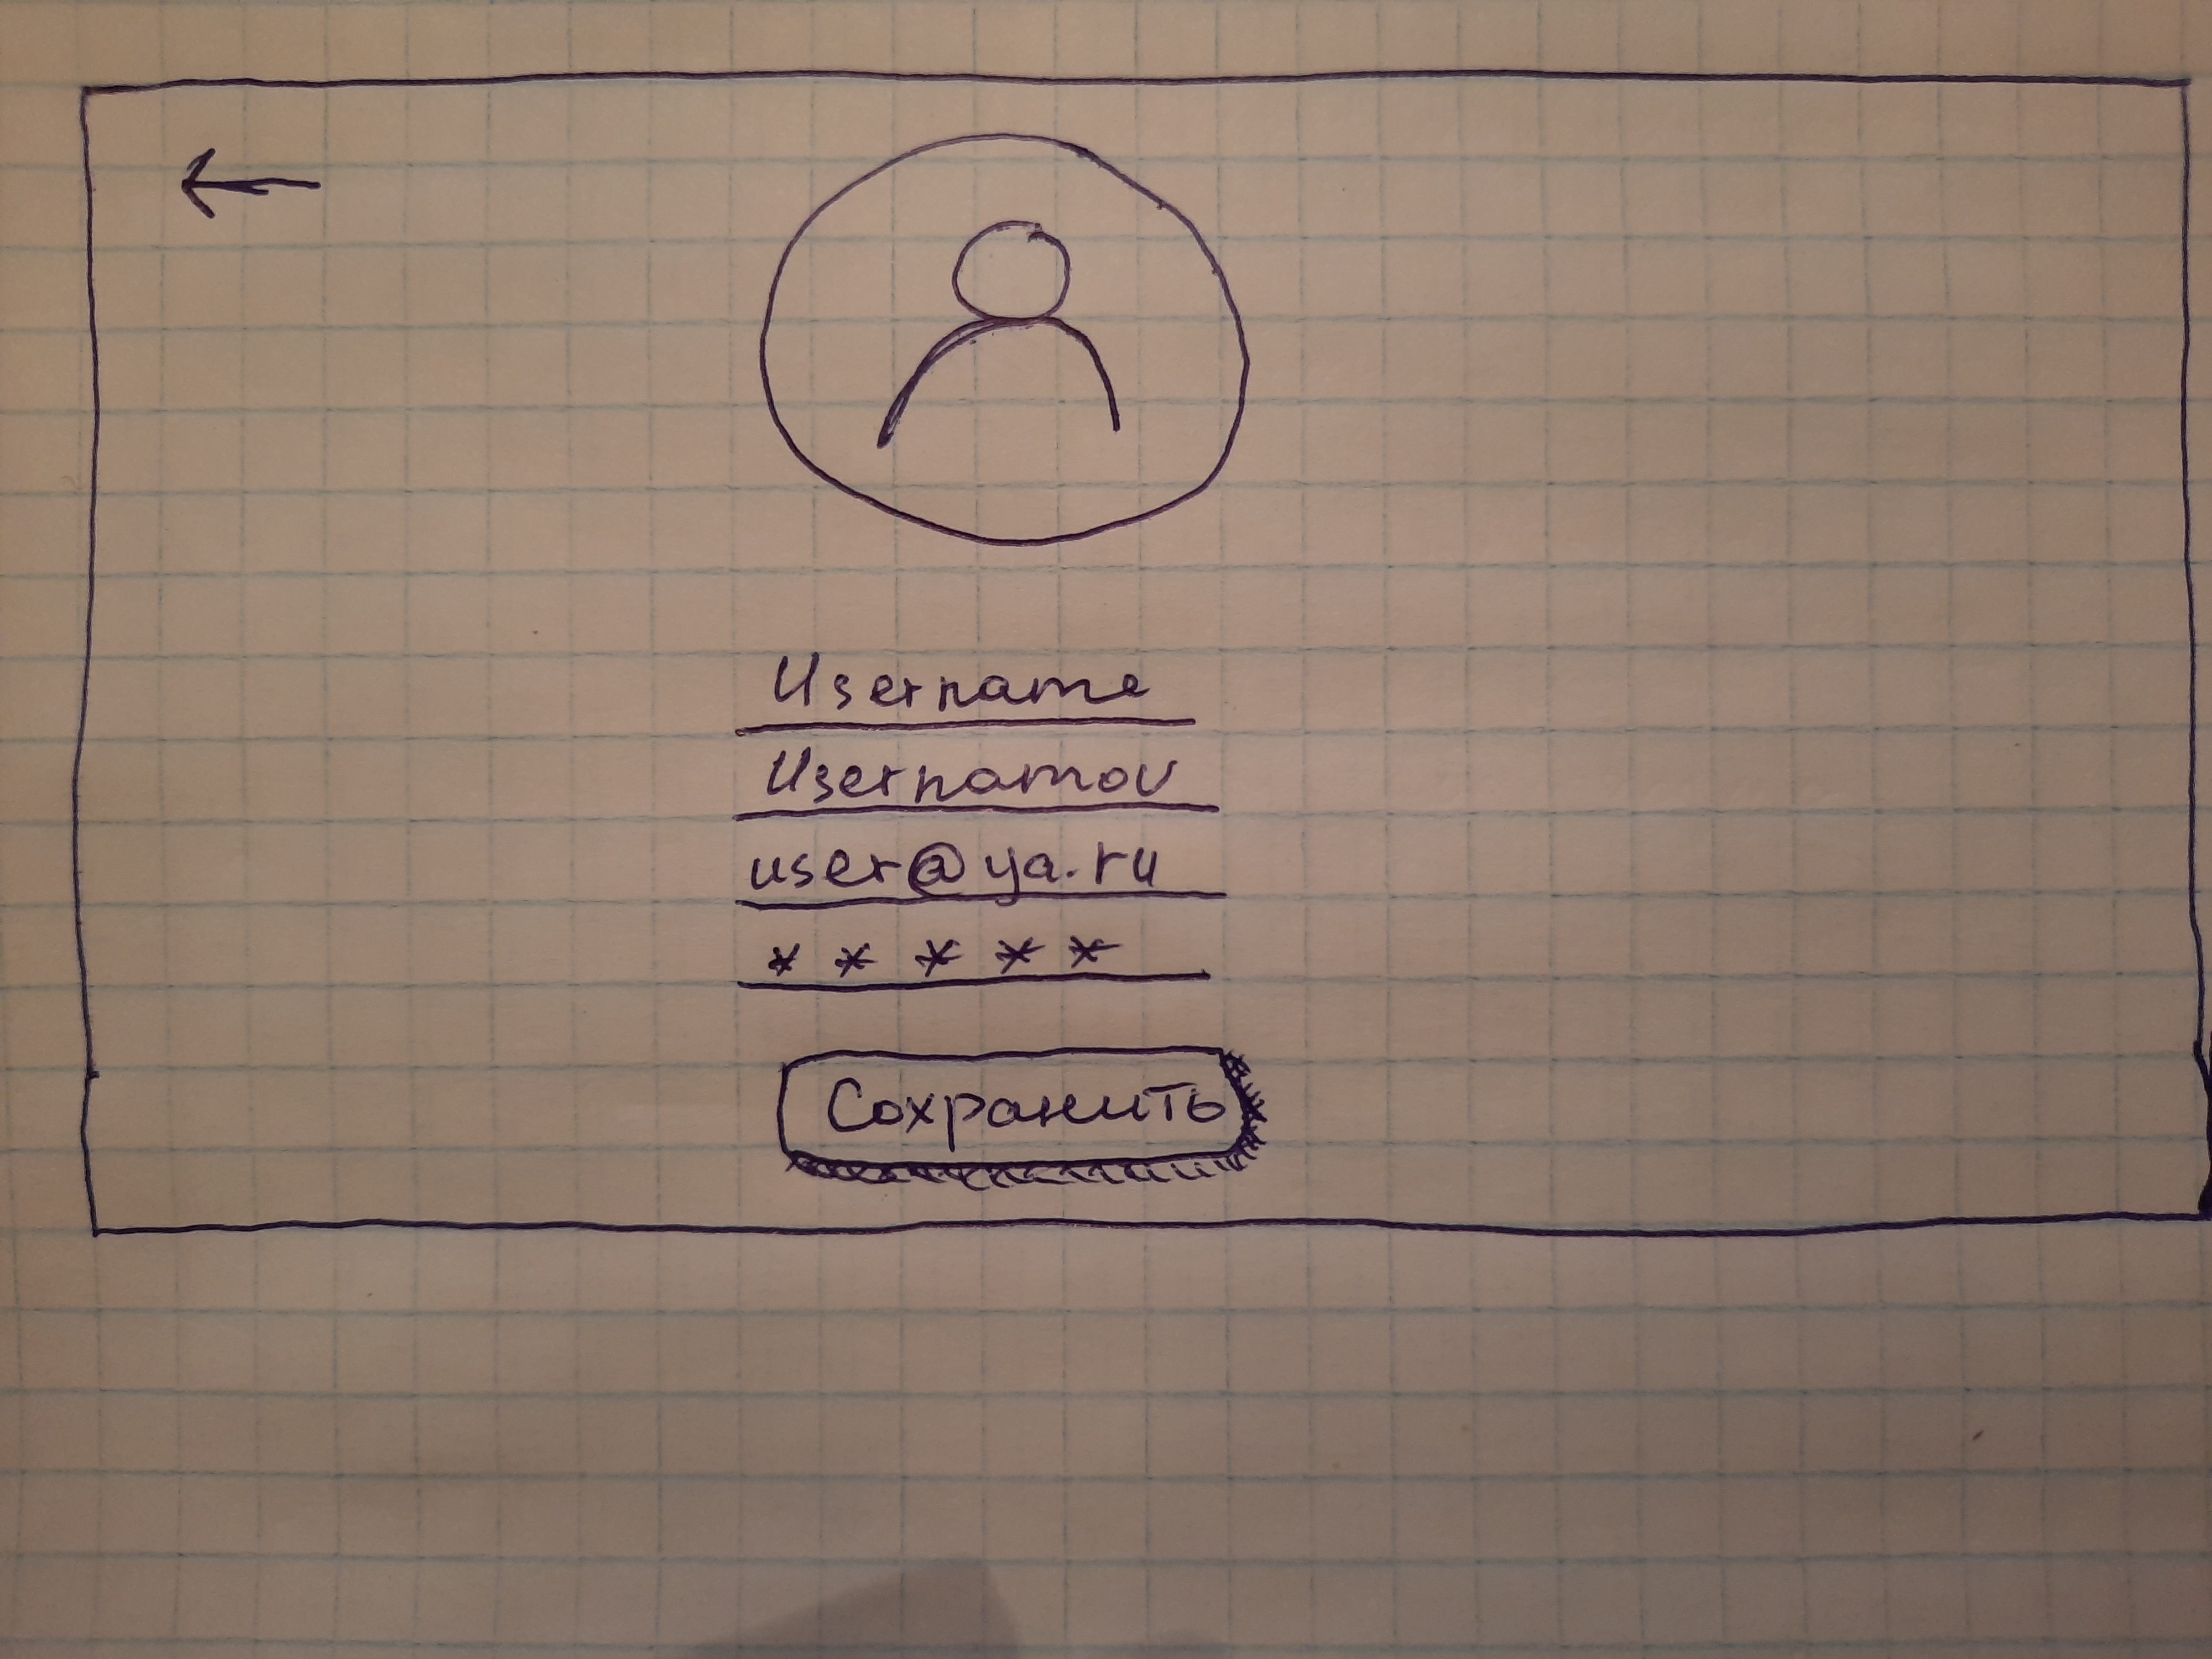 Username
Usernamov
user@ya.ru
* * * * *
Сохранить